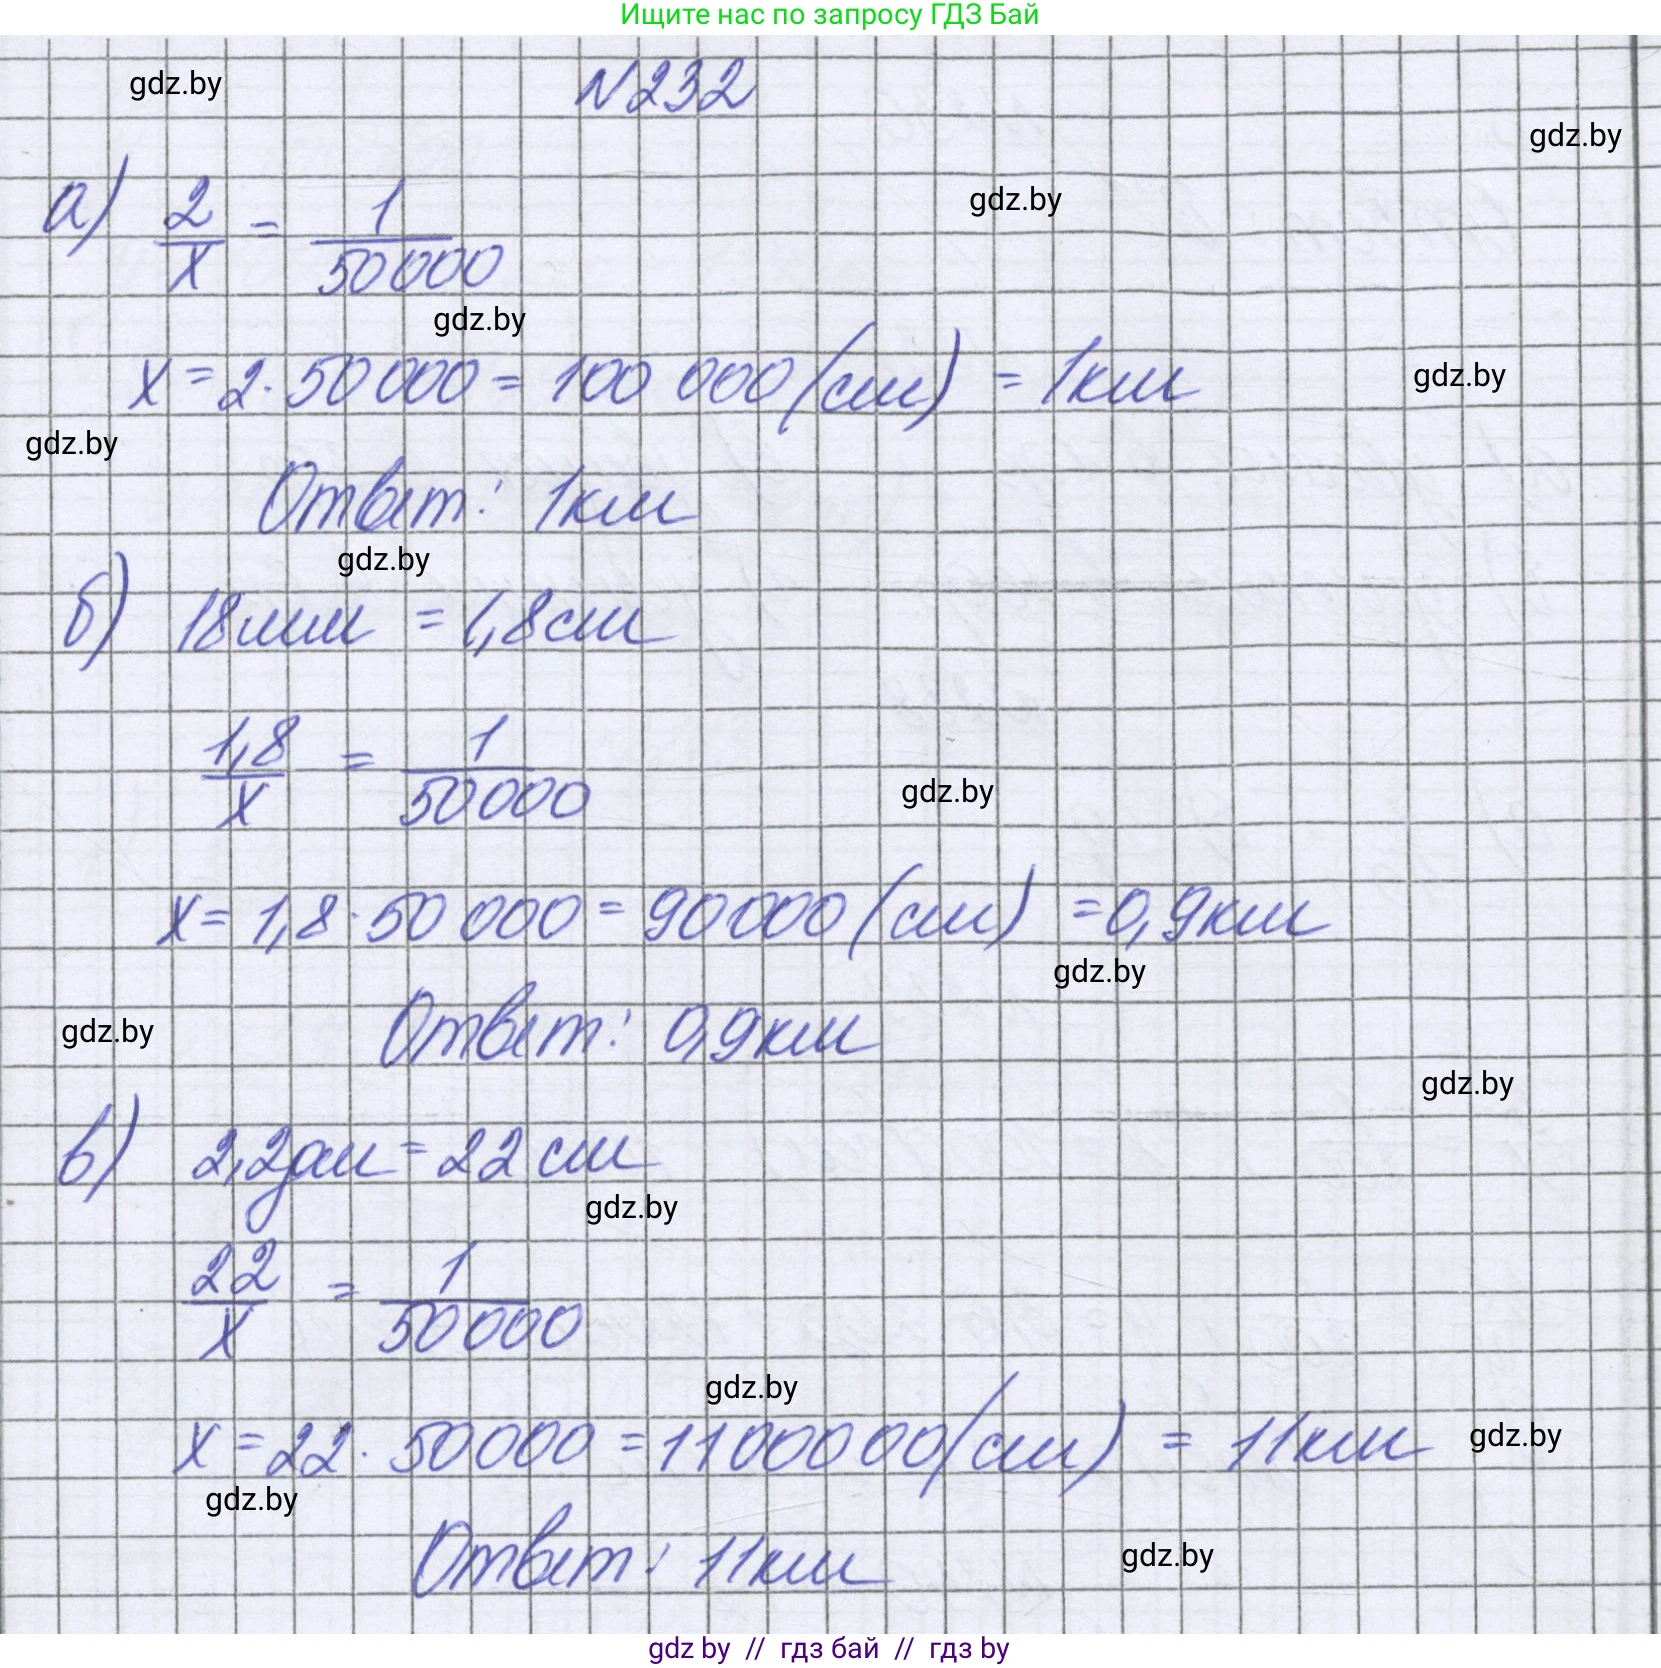 Ищите нас по запросу ГДЗ Бай
N232
gdz.by
gdz.by
а) 2/x = 1/50000
gdz.by
gdz.by
x = 2 · 50 000 = 100 000 (см) = 1км
gdz.by
gdz.by
Ответ: 1км
gdz.by
б) 18мм = 1,8см
1,8/x = 1/50000
gdz.by
x = 1,8 · 50 000 = 90000 (см) = 0,9км
gdz.by
Ответ: 0,9км
gdz.by
gdz.by
в) 2,2дм = 22 см
gdz.by
22/x = 1/50000
gdz.by
x = 22 · 50000 = 1100000 (см) = 11км
gdz.by
gdz.by
Ответ: 11км
gdz.by
gdz by // гдз бай // гдз by